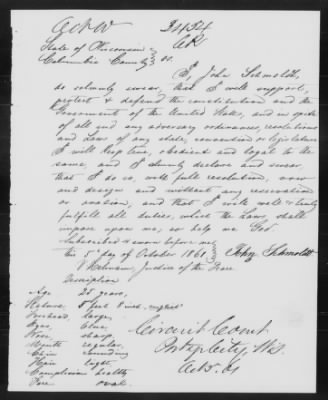 24134
State of Wisconsin
Columbia County } ss.
I, John Schmoldt,
do solemnly swear, that I will support,
protect & defend the constitution and the
Government of the United States, and in spite
of all and any adversary ordinances, resolutions
and Laws of any state, convention or legislature
I will keep true, obedient and loyal to the
same, and I sincerely declare and swear,
that I do so, with full resolution,
and design and without any reservation
or evasion, and that I will well & truly
fulfill all duties, which the Laws, shall
impose upon me, so help me God.
Subscribed & sworn before me
this 5 day of October 1861
John Schmoldt
Justice of the Peace
Description
Age 25 years,
5 feet 8 inch, english
Forehead large.
Eyes, blue,
Nose sharp
Mouth regular.
Chin rounding
Hair light
Complexion healthy
Face oval.
Circuit Court
Portage City, Wis
Oct 5. 61